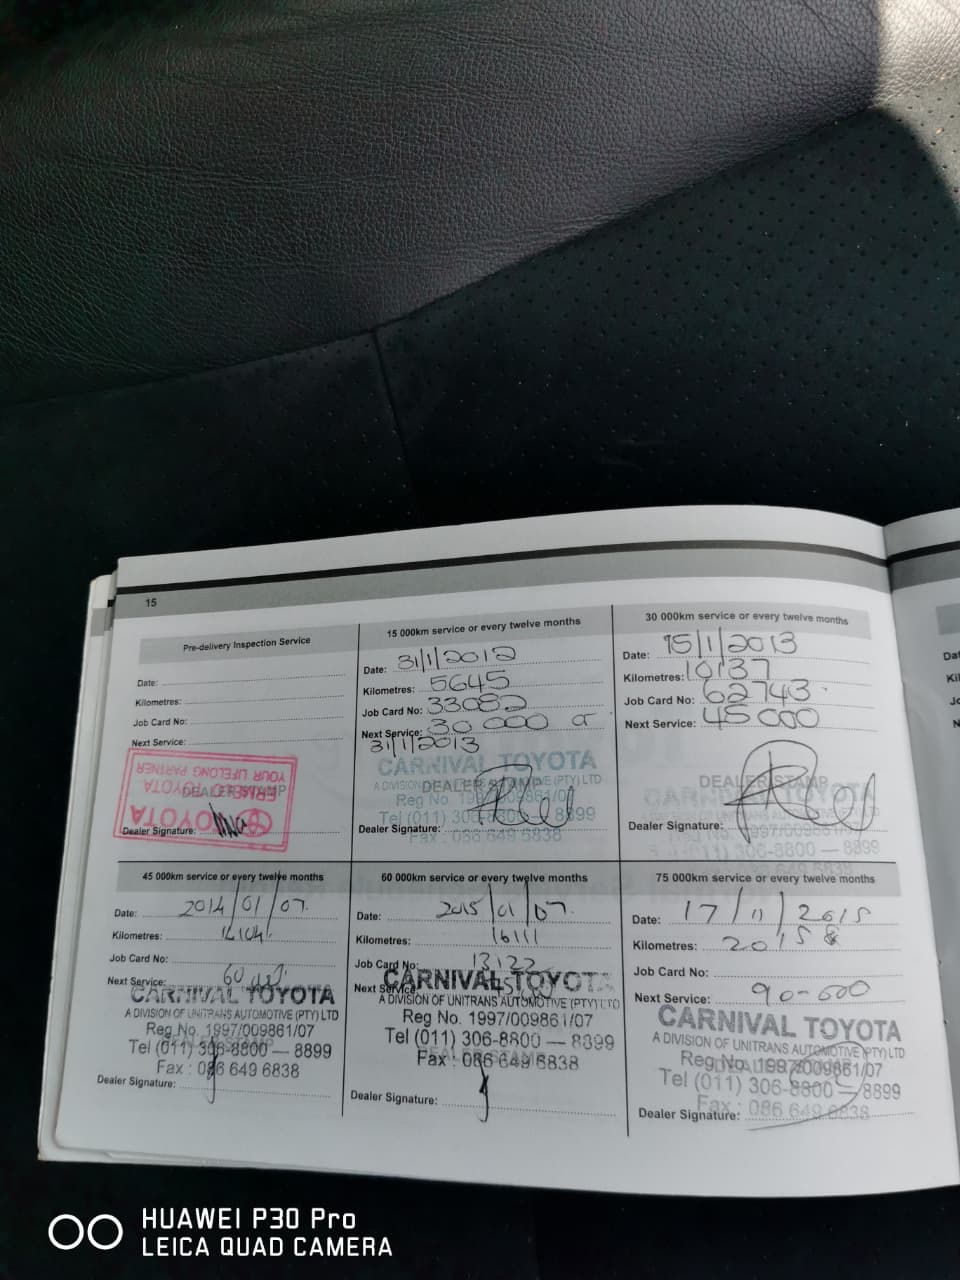 15
Pre-delivery Inspection Service
Date:
Kilometres:
Job Card No:
Next Service:
TOYOTA
TOYOTA
YOUR LIFELONG PARTNER
DEALER STAMP
Dealer Signature:
15 000km service or every twelve months
Date: 31/1/2012
Kilometres: 5645
Job Card No: 33082
Next Service: 30 000 or
31/1/2013
CARNIVAL TOYOTA
A DIVISION OF UNITRANS AUTOMOTIVE (PTY) LTD
DEALER STAMP
Reg No. 1997/009861/07
Tel (011) 306-8800 — 8899
Dealer Signature:
Fax : 086 649 6838
30 000km service or every twelve months
Date: 15/1/2013
Kilometres: 10137
Job Card No: 62743
Next Service: 45 000
DEALER STAMP
CARNIVAL TOYOTA
Dealer Signature:
1997/009861/07
(011) 306-8800 — 8899
45 000km service or every twelve months
Date: 2014/01/07
Kilometres:
Job Card No:
Next Service: 60
CARNIVAL TOYOTA
A DIVISION OF UNITRANS AUTOMOTIVE (PTY) LTD
Reg No. 1997/009861/07
Tel (011) 306-8800 — 8899
Fax : 086 649 6838
Dealer Signature:
60 000km service or every twelve months
Date: 2015/01/07
Kilometres: 16111
Job Card No: 13122
Next Service:
CARNIVAL TOYOTA
A DIVISION OF UNITRANS AUTOMOTIVE (PTY) LTD
Reg No. 1997/009861/07
Tel (011) 306-8800 — 8899
Fax : 086 649 6838
Dealer Signature:
75 000km service or every twelve months
Date: 17/11/2015
Kilometres: 20158
Job Card No:
Next Service: 90-000
CARNIVAL TOYOTA
A DIVISION OF UNITRANS AUTOMOTIVE (PTY) LTD
Reg No. 1997/009861/07
Tel (011) 306-8800 — 8899
Fax : 086 649 6838
Dealer Signature:
Dat
Kil
Jo
N
HUAWEI P30 Pro
LEICA QUAD CAMERA